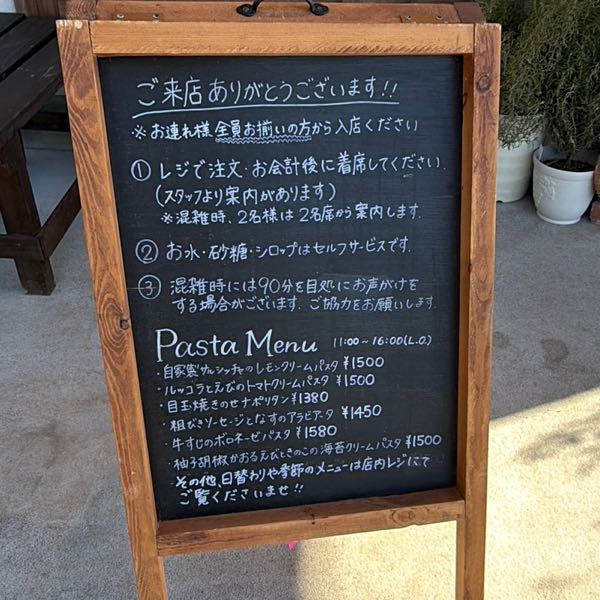 ご来店ありがとうございます!!
※お連れ様 全員お揃いの方から入店ください
① レジで注文・お会計後に着席してください.
(スタッフより案内があります)
※混雑時、2名様は2名席から案内します.
② お水・砂糖・シロップはセルフサービスです.
③ 混雑時には90分を目処にお声がけを
する場合がございます. ご協力をお願いします.
Pasta Menu 11:00~16:00(L.O.)
・自家製サルシッチャのレモンクリームパスタ ¥1500
・ルッコラとえびのトマトクリームパスタ ¥1500
・目玉焼きのせナポリタン ¥1380
・粗びきソーセージとなすのアラビアータ ¥1450
・牛すじのボロネーゼパスタ ¥1580
・柚子胡椒かおるえびときのこの海苔クリームパスタ ¥1500
・その他、日替わりや季節のメニューは店内レジにて
ご覧くださいませ!!